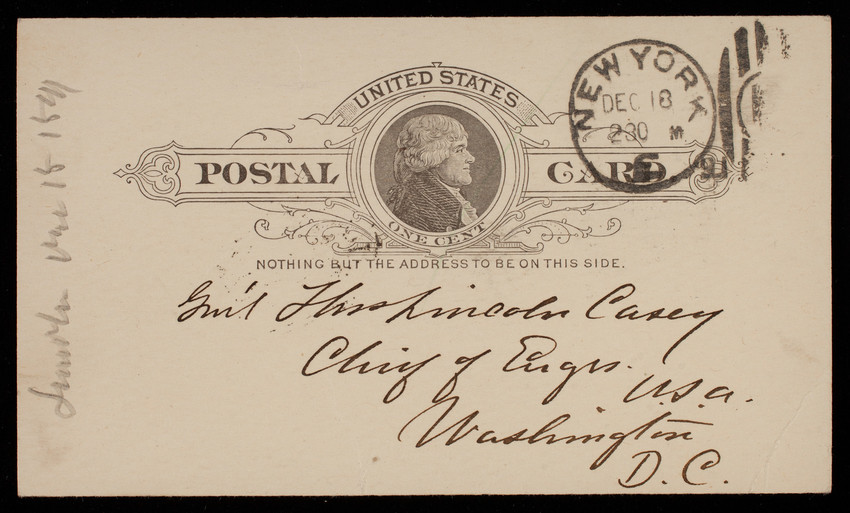 UNITED STATES
POSTAL CARD.
ONE CENT
NOTHING BUT THE ADDRESS TO BE ON THIS SIDE.
NEW YORK
DEC 18
230 M
91
6
Gen'l Thos Lincoln Casey
Chief of Engrs.
U.S.A.
Washington
D.C.